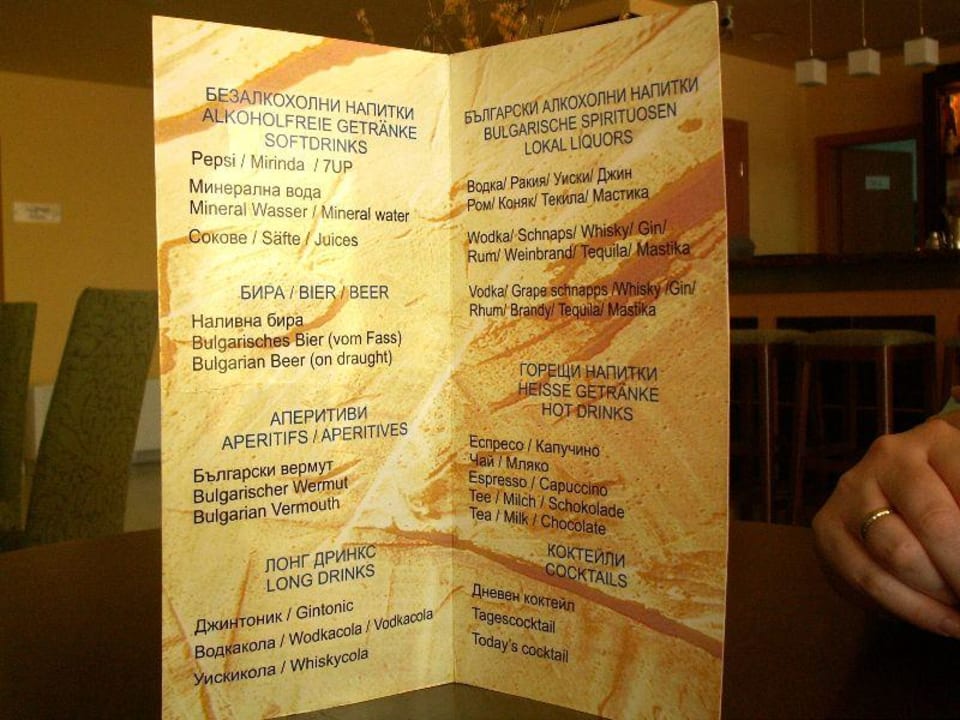 БЕЗАЛКОХОЛНИ НАПИТКИ
ALKOHOLFREIE GETRÄNKE
SOFTDRINKS
Pepsi / Mirinda / 7UP
Минерална вода
Mineral Wasser / Mineral water
Сокове / Säfte / Juices
БИРА / BIER / BEER
Наливна бира
Bulgarisches Bier (vom Fass)
Bulgarian Beer (on draught)
АПЕРИТИВИ
APERITIFS / APERITIVES
Български вермут
Bulgarischer Wermut
Bulgarian Vermouth
ЛОНГ ДРИНКС
LONG DRINKS
Джинтоник / Gintonic
Водкакола / Wodkacola / Vodkacola
Уискикола / Whiskycola
БЪЛГАРСКИ АЛКОХОЛНИ НАПИТКИ
BULGARISCHE SPIRITUOSEN
LOKAL LIQUORS
Водка/ Ракия/ Уиски/ Джин
Ром/ Коняк/ Текила/ Мастика
Wodka/ Schnaps/ Whisky/ Gin/
Rum/ Weinbrand/ Tequila/ Mastika
Vodka/ Grape schnapps /Whisky /Gin/
Rhum/ Brandy/ Tequila/ Mastika
ГОРЕЩИ НАПИТКИ
HEISSE GETRÄNKE
HOT DRINKS
Еспресо / Капучино
Чай / Мляко
Espresso / Capuccino
Tee / Milch / Schokolade
Tea / Milk / Chocolate
КОКТЕЙЛИ
COCKTAILS
Дневен коктейл
Tagescocktail
Today's cocktail